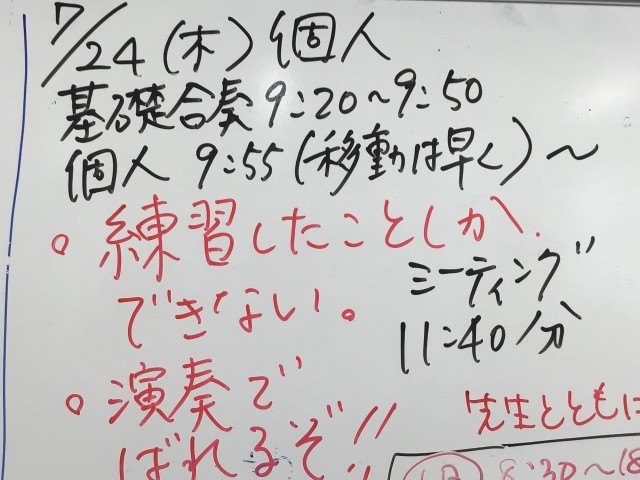 7/24(木)個人
基礎合奏 9:20～9:50
個人 9:55(移動は早く)～
。練習したことしか、
できない。
ミーティング
11:40分
。演奏で
ばれるぞ!!
先生とともに
(1日) 8:30～18